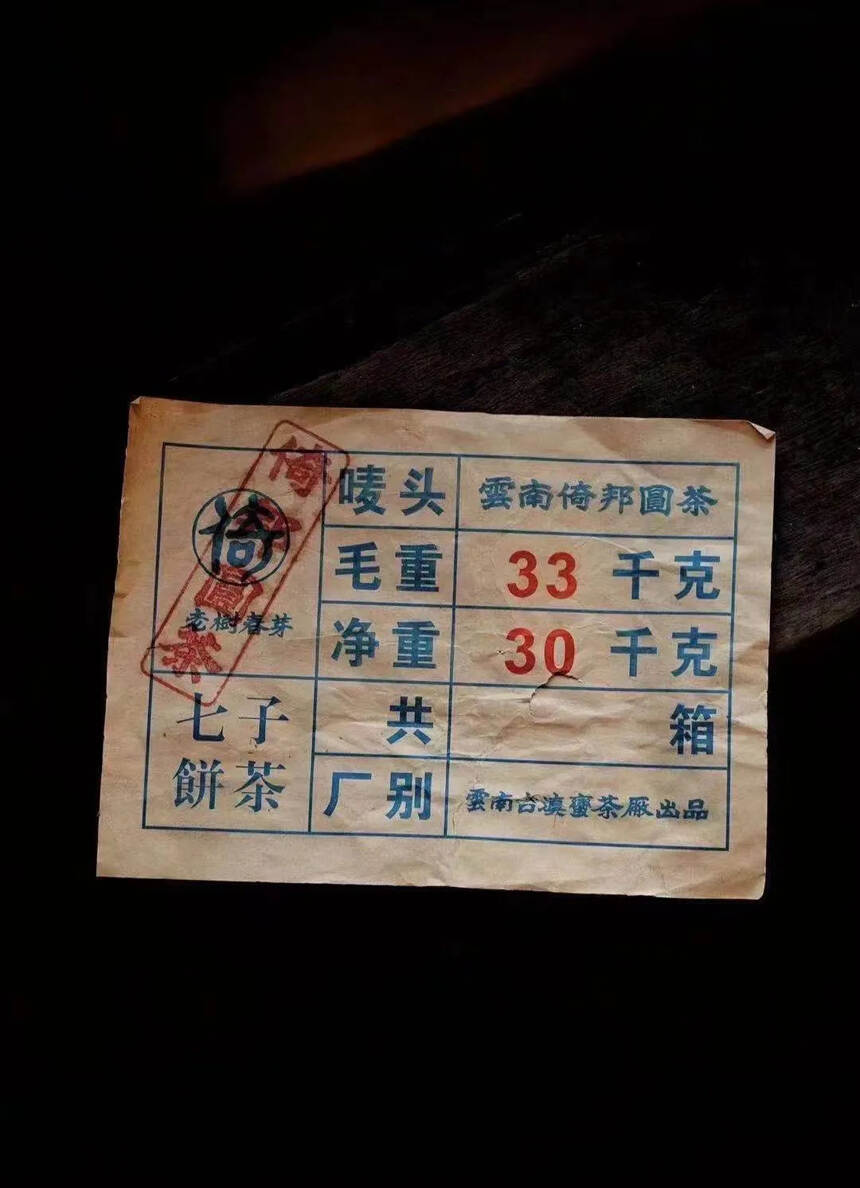 倚
老樹春芽
七子
餅茶
唛头 雲南倚邦圓茶
毛重 33 千克
净重 30 千克
共 箱
厂别 雲南古滇蛮茶廠出品
倚邦圓茶